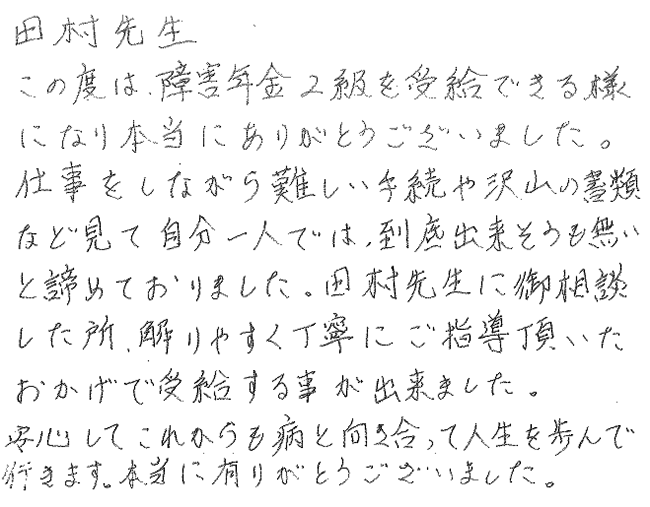 田村先生
この度は、障害年金2級を受給できる様
になり本当にありがとうございました。
仕事をしながら難しい手続や沢山の書類
など見て自分一人では、到底出来そうも無い
と諦めておりました。田村先生に御相談
した所、解りやすく丁寧にご指導頂いた
おかげで受給する事が出来ました。
安心してこれからも病と向き合って人生を歩んで
行きます。本当に有りがとうございました。